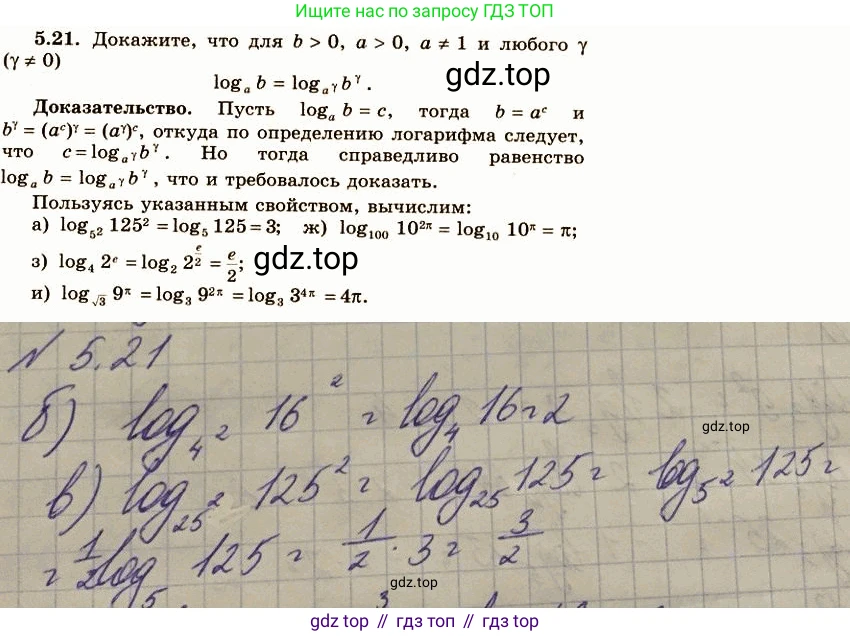 Пишите нам в Телеграм для ГДЗ ТОП
5.21. Докажите, что для b > 0, a > 0, a ≠ 1 и любого γ
(γ ≠ 0)
logₐ b = log_{a^γ} b^γ.
gdz.top
Доказательство. Пусть logₐ b = c, тогда b = a^c и
b^γ = (a^c)^γ = (a^γ)^c, откуда по определению логарифма следует,
что c = log_{a^γ} b^γ. Но тогда справедливо равенство
logₐ b = log_{a^γ} b^γ, что и требовалось доказать.
Пользуясь указанным свойством, вычислим:
а) log_{5^2} 125^2 = log_5 125 = 3; ж) log_{100} 10^{2π} = log_{10} 10^π = π;
з) log_4 2^e = log_2 2^{e/2} = e/2;
gdz.top
и) log_{√3} 9^π = log_3 9^{2π} = log_3 3^{4π} = 4π.
№ 5.21
б) log_{4^2} 16^2 = log_4 16 = 2
gdz.top
в) log_{25^2} 125^2 = log_{25} 125 = log_{5^2} 125 =
= 1/2 log_5 125 = 1/2 · 3 = 3/2
gdz.top
gdz.top // gdz.top // gdz.top